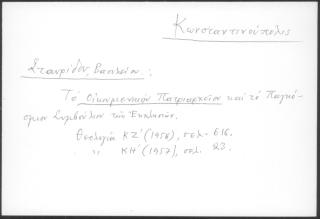 Κωνσταντινούπολις
Σταυρίδου, Βασιλείου :
Τὸ Οἰκουμενικὸν Πατριαρχεῖον καὶ τὸ Παγκό-
σμιον Συμβούλιον τῶν Ἐκκλησιῶν.
Θεολογία ΚΖ' (1956), σελ. 616.
" ΚΗ' (1957), σελ. 23.